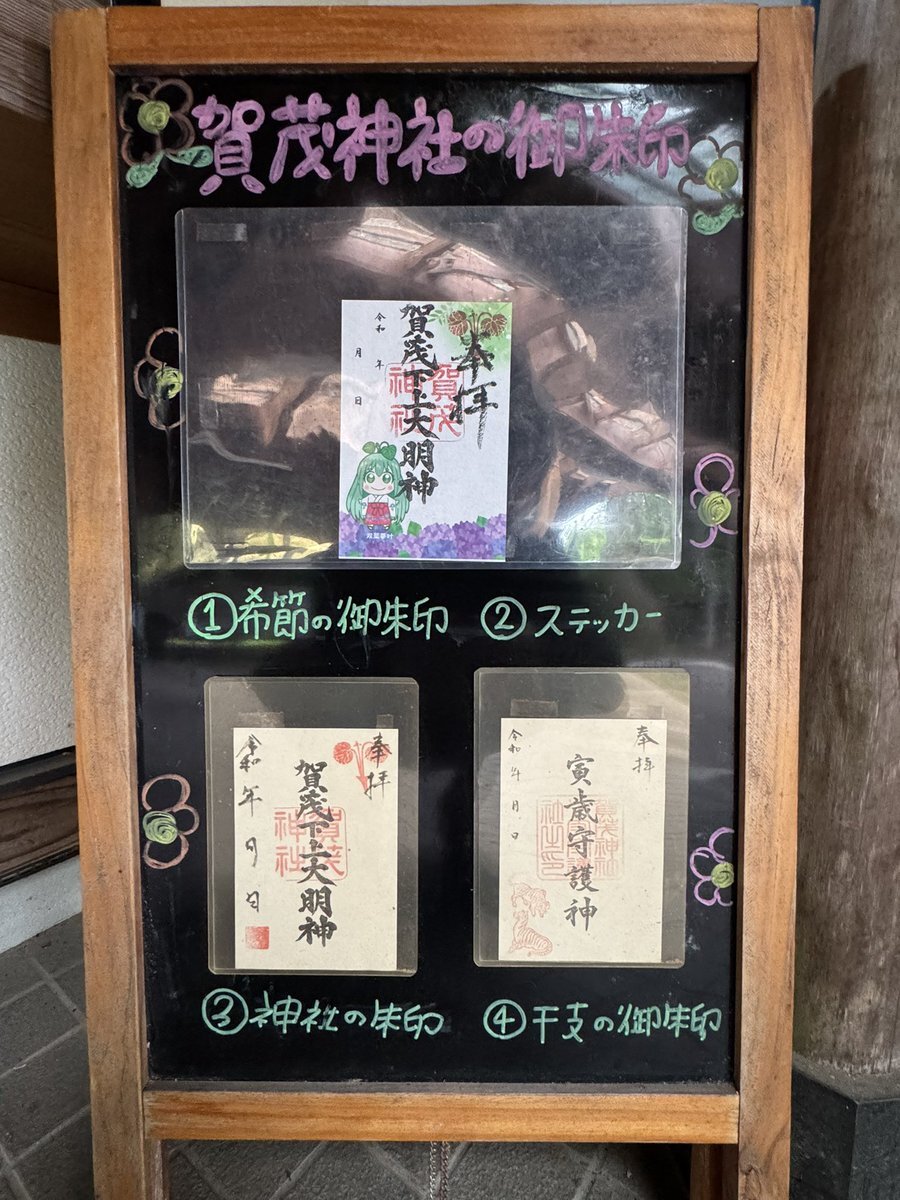 賀茂神社の御朱印
奉拝
賀茂下上大明神
賀茂神社
令和 年
月 日
双葉葵叶
①希節の御朱印 ②ステッカー
奉拝
賀茂下上大明神
賀茂神社
令和 年 月 日
奉拝
寅歳守護神
令和 年 月 日
③神社の朱印 ④干支の御朱印